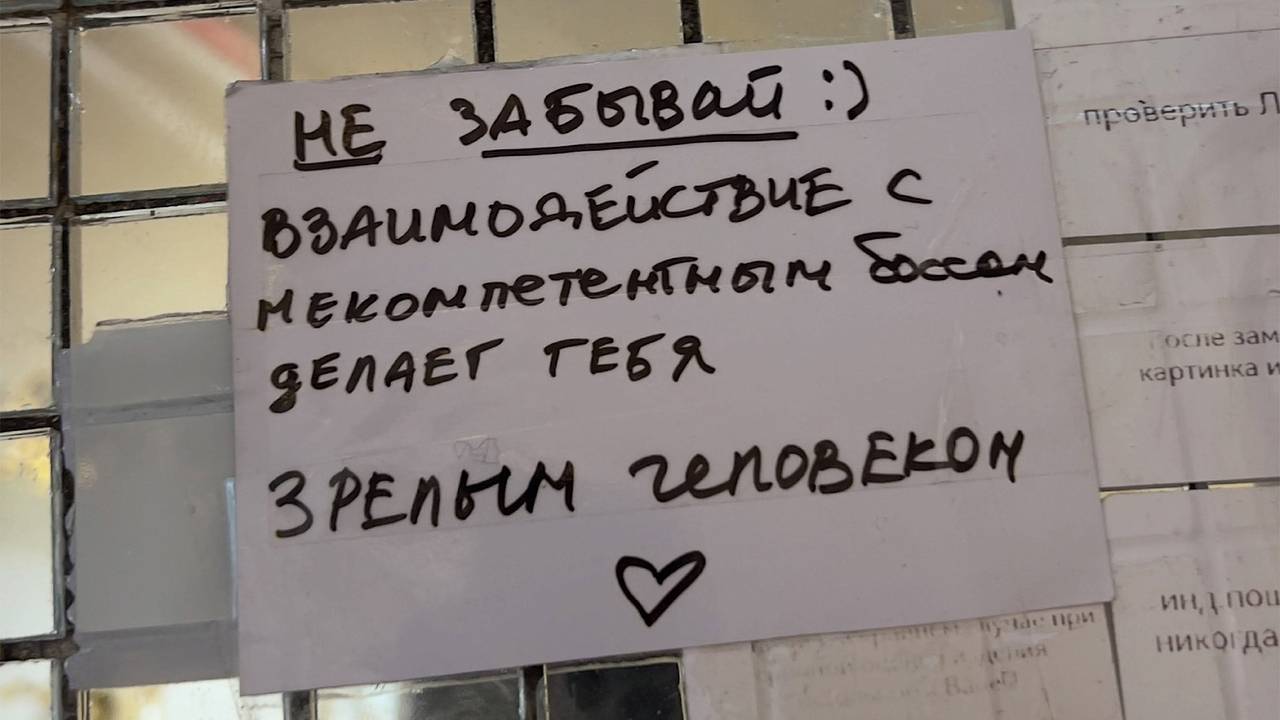 НЕ ЗАБЫВАЙ :)
ВЗАИМОДЕЙСТВИЕ С
НЕКОМПЕТЕНТНЫМ БОССОМ
ДЕЛАЕТ ТЕБЯ
ЗРЕЛЫМ ЧЕЛОВЕКОМ
проверить
после зам
картинка и
инд пош
никогда
случае при